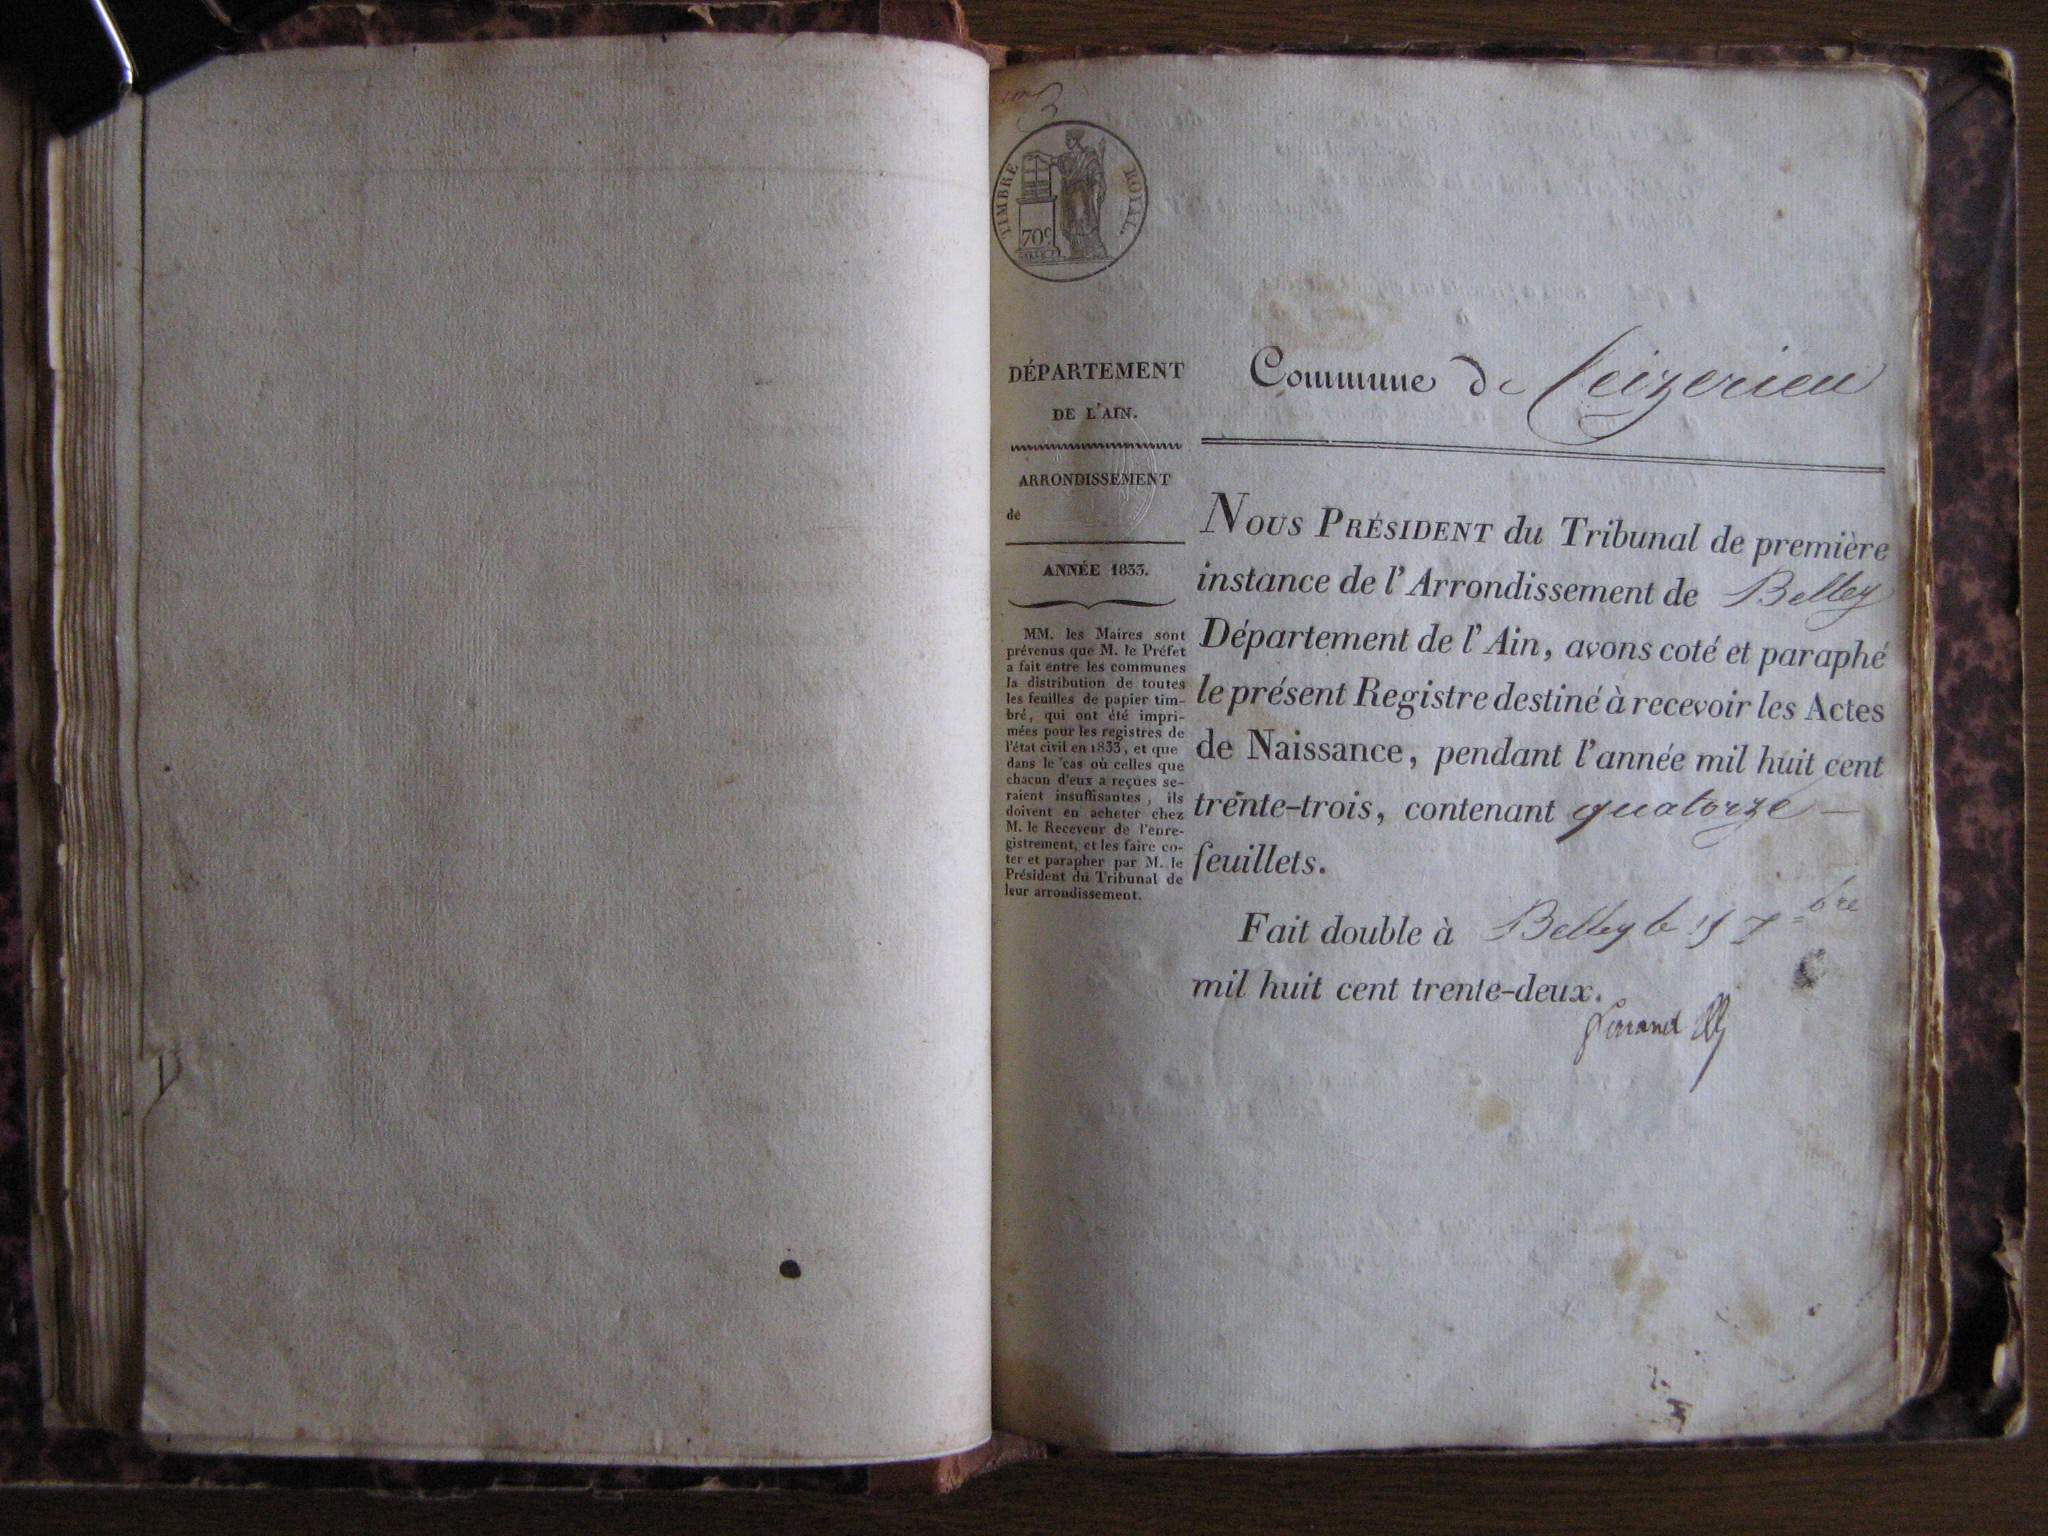 TIMBRE ROYAL.
70 c
DÉPARTEMENT
DE L'AIN.
ARRONDISSEMENT
de
ANNÉE 1833.
MM. les Maires sont
prévenus que M. le Préfet
a fait entre les communes
la distribution de toutes
les feuilles de papier tim-
bré, qui ont été impri-
mées pour les registres de
l'état civil en 1833, et que
dans le cas où celles que
chacun d'eux a reçues se-
raient insuffisantes, ils
doivent en acheter chez
M. le Receveur de l'enre-
gistrement, et les faire co-
ter et parapher par M. le
Président du Tribunal de
leur arrondissement.
Commune de Ceizerieu
NOUS PRÉSIDENT du Tribunal de première
instance de l'Arrondissement de Belley
Département de l'Ain, avons coté et paraphé
le présent Registre destiné à recevoir les Actes
de Naissance, pendant l'année mil huit cent
trente-trois, contenant quatorze —
feuillets.
Fait double à Belley le 15 7bre
mil huit cent trente-deux.